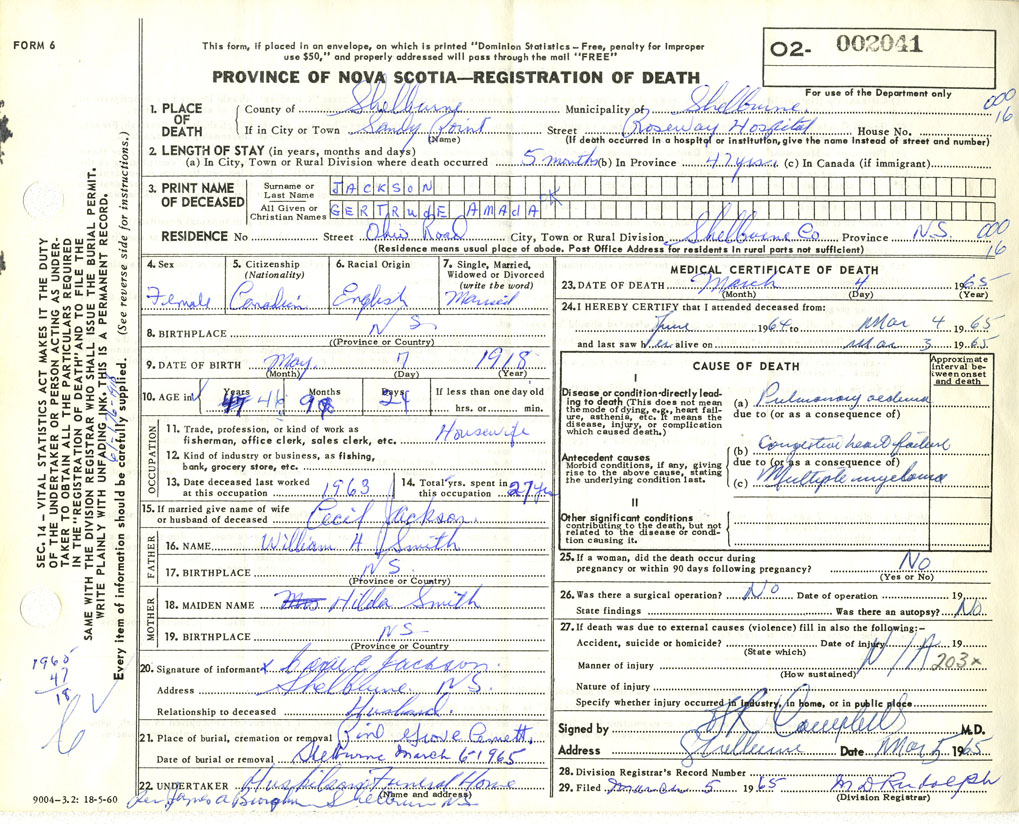 FORM 6
This form, if placed in an envelope, on which is printed "Dominion Statistics – Free, penalty for improper
use $50," and properly addressed will pass through the mail "FREE"
PROVINCE OF NOVA SCOTIA—REGISTRATION OF DEATH
O2- 002041
For use of the Department only
1. PLACE OF DEATH
County of Shelburne Municipality of Shelburne 000 16
If in City or Town Sandy Point Street Roseway Hospital House No.
(Name) (If death occurred in a hospital or institution, give the name instead of street and number)
2. LENGTH OF STAY (in years, months and days)
(a) In City, Town or Rural Division where death occurred 5 months (b) In Province 47 yrs. (c) In Canada (if immigrant)
3. PRINT NAME OF DECEASED
Surname or Last Name JACKSON
All Given or Christian Names GERTRudE AMAdA K
RESIDENCE No Street Ohio Road City, Town or Rural Division Shelburne Co Province N.S. 000 16
(Residence means usual place of abode. Post Office Address for residents in rural parts not sufficient)
4. Sex Female
5. Citizenship (Nationality) Canadian
6. Racial Origin English
7. Single, Married, Widowed or Divorced (write the word) Married
8. BIRTHPLACE N S
(Province or Country)
9. DATE OF BIRTH May 7 1918
(Month) (Day) (Year)
10. AGE in Years 46 Months 9 Days 24 If less than one day old hrs. or min.
OCCUPATION
11. Trade, profession, or kind of work as
fisherman, office clerk, sales clerk, etc. Housewife
12. Kind of industry or business, as fishing,
bank, grocery store, etc.
13. Date deceased last worked at this occupation 1963
14. Total yrs. spent in this occupation 27 yrs
15. If married give name of wife or husband of deceased Cecil Jackson
FATHER
16. NAME William H Smith
17. BIRTHPLACE N.S.
(Province or Country)
MOTHER
18. MAIDEN NAME Mrs Hilda Smith
19. BIRTHPLACE NS
(Province or Country)
20. Signature of informant x Jackson
Address Shelburne N.S.
Relationship to deceased Husband.
21. Place of burial, cremation or removal Pine Grove
Date of burial or removal Shelburne March 6-1965
22. UNDERTAKER Funeral Home
(Name and address)
Per James A Shelburne NS
9004–3.2: 18-5-60
MEDICAL CERTIFICATE OF DEATH
23. DATE OF DEATH March 4 1965
(Month) (Day) (Year)
24. I HEREBY CERTIFY that I attended deceased from:
June 1964 to Mar 4 1965
and last saw her alive on Mar 3 1965
CAUSE OF DEATH
Approximate interval between onset and death
I
Disease or condition directly leading to death (This does not mean the mode of dying, e.g., heart failure, asthenia, etc. It means the disease, injury, or complication which caused death.)
(a) Pulmonary oedema
due to (or as a consequence of)
Antecedent causes
Morbid conditions, if any, giving rise to the above cause, stating the underlying condition last.
(b) Congestive heart failure
due to (or as a consequence of)
(c) Multiple myeloma
II
Other significant conditions
contributing to the death, but not related to the disease or condition causing it.
25. If a woman, did the death occur during
pregnancy or within 90 days following pregnancy? No
(Yes or No)
26. Was there a surgical operation? No Date of operation 19
State findings Was there an autopsy? No
27. If death was due to external causes (violence) fill in also the following:–
Accident, suicide or homicide? Date of injury 19
(State which)
N/A
203x
Manner of injury
(How sustained)
Nature of injury
Specify whether injury occurred in industry, in home, or in public place
Signed by Campbell M.D.
Address Shelburne Date Mar 5 1965
28. Division Registrar's Record Number
29. Filed March 5 1965 M D Rudolph
(Division Registrar)
SEC. 14 – VITAL STATISTICS ACT MAKES IT THE DUTY
OF THE UNDERTAKER OR PERSON ACTING AS UNDER-
TAKER TO OBTAIN ALL THE PARTICULARS REQUIRED
IN THE "REGISTRATION OF DEATH" AND TO FILE THE
SAME WITH THE DIVISION REGISTRAR WHO SHALL ISSUE THE BURIAL PERMIT.
WRITE PLAINLY WITH UNFADING INK. THIS IS A PERMANENT RECORD.
Every item of information should be carefully supplied. (See reverse side for instructions.)
1965
47
18